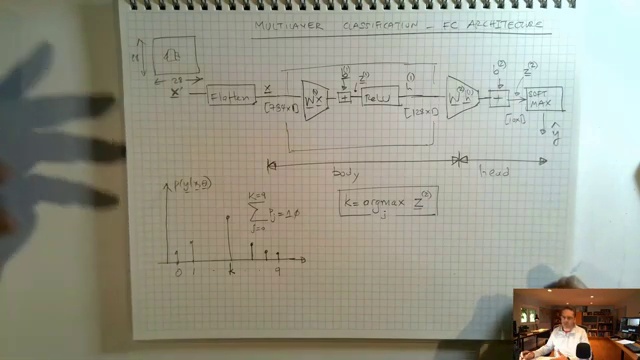 MULTILAYER CLASSIFICATION - FC ARCHITECTURE
28
28
x'
Flatten
x
[784x1]
W⁽¹⁾x
b⁽¹⁾
+
z⁽¹⁾
ReLU
h⁽¹⁾
[128x1]
W⁽²⁾h⁽¹⁾
b⁽²⁾
+
z⁽²⁾
[10x1]
SOFT
MAX
ŷ
body
head
p(y|x,θ)
K=9
Σ Pj = 1.0
j=0
K = argmax z⁽²⁾
j
0 1 k 9